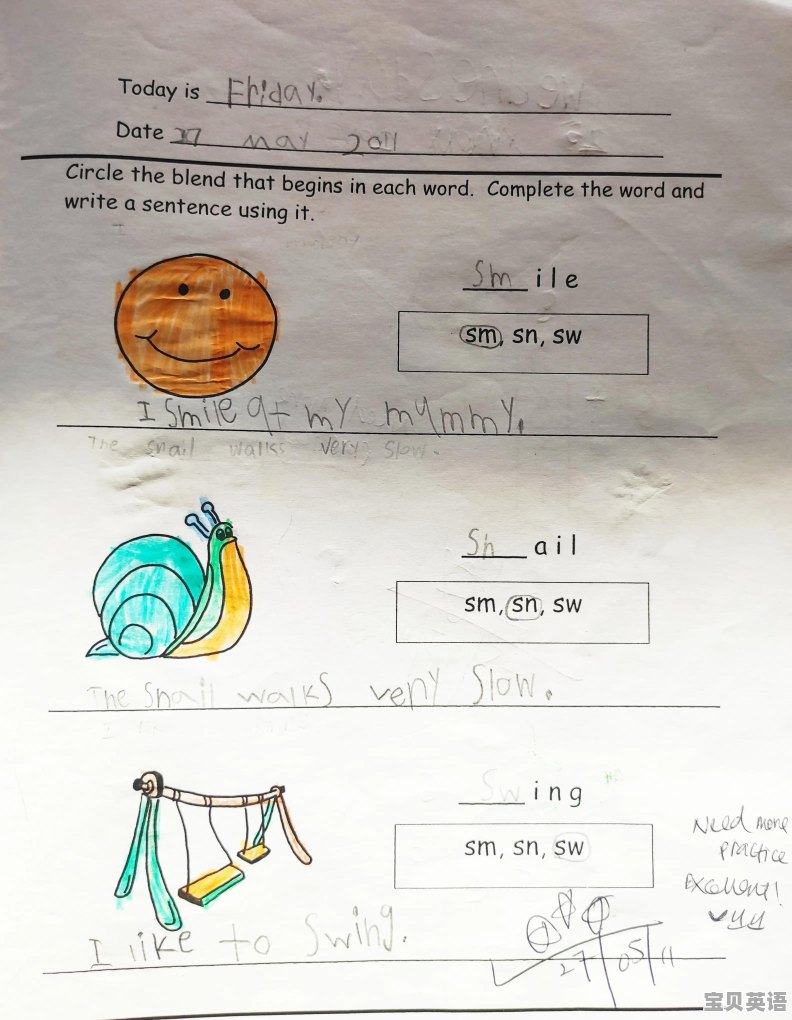 Today is Friday.
Date 27 may 2011
Circle the blend that begins in each word. Complete the word and
write a sentence using it.
Sm ile
sm, sn, sw
I smile at my mummy.
The snail walks very slow.
Sn ail
sm, sn, sw
The Snail walks very Slow.
Sw ing
sm, sn, sw
Need more
practice
Excellent!
I like to Swing.
27/05/11
宝贝英语